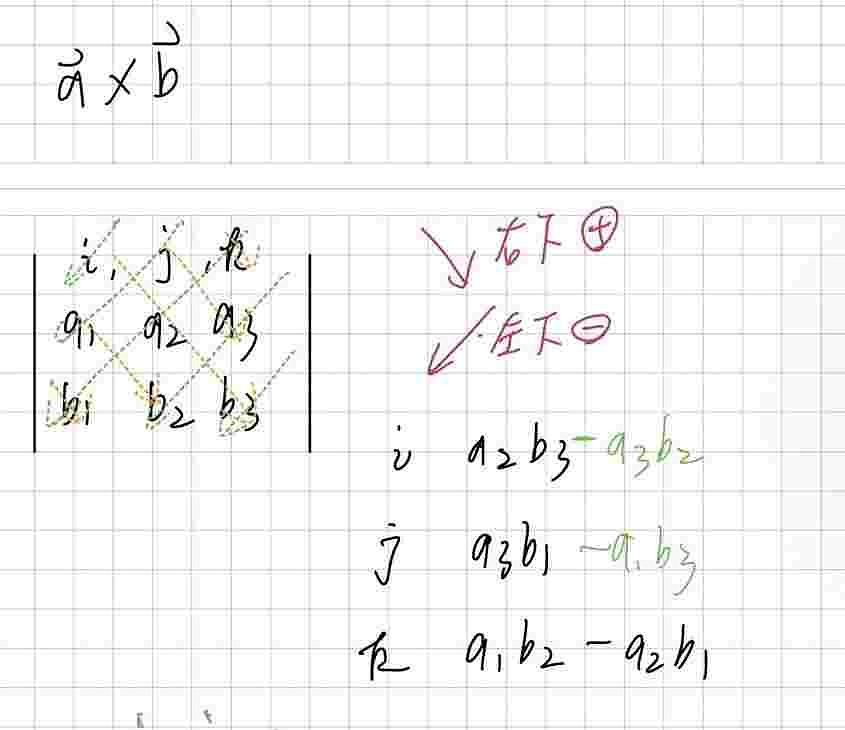 a⃗ × b⃗
i, j, k
a₁ a₂ a₃
b₁ b₂ b₃
右下 ⊕
左下 ⊖
i a₂b₃ - a₃b₂
j a₃b₁ - a₁b₃
k a₁b₂ - a₂b₁